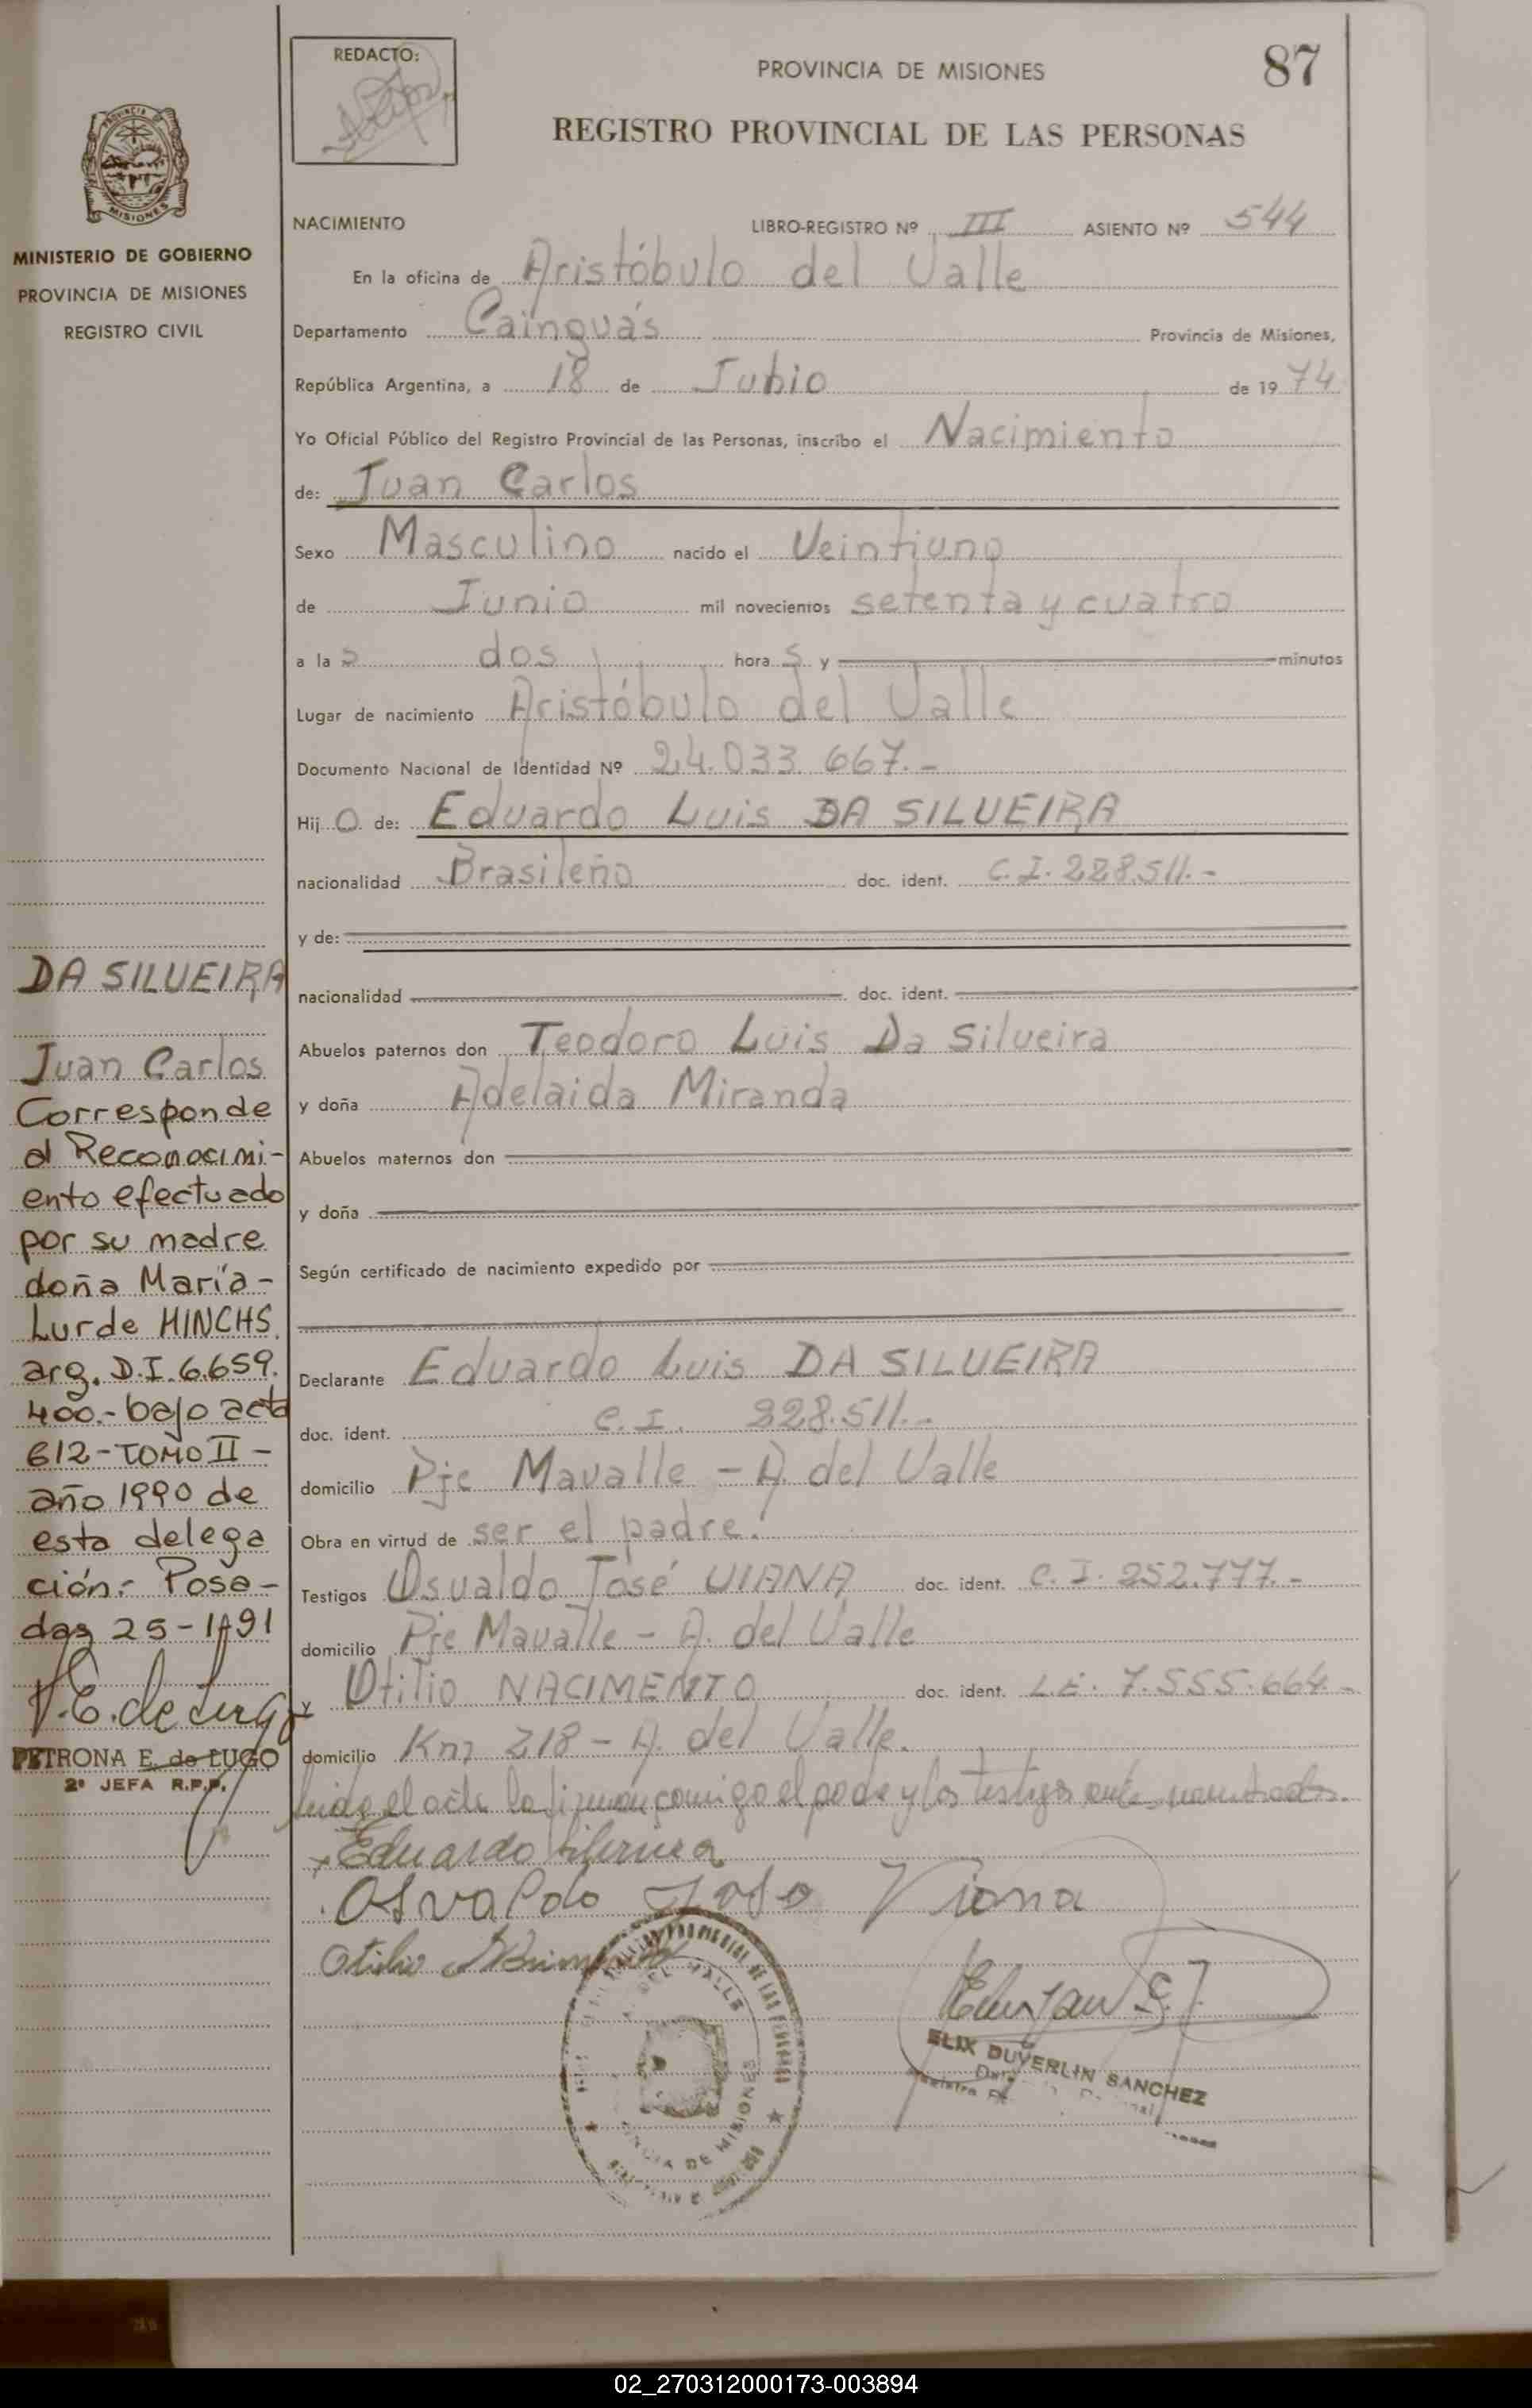 REDACTO:
PROVINCIA DE MISIONES
87
REGISTRO PROVINCIAL DE LAS PERSONAS
PROVINCIA DE
MISIONES
MINISTERIO DE GOBIERNO
PROVINCIA DE MISIONES
REGISTRO CIVIL
NACIMIENTO LIBRO-REGISTRO Nº III ASIENTO Nº 544
En la oficina de Aristóbulo del Valle
Departamento Cainguás Provincia de Misiones,
República Argentina, a 18 de Julio de 1974
Yo Oficial Público del Registro Provincial de las Personas, inscribo el Nacimiento
de: Juan Carlos
Sexo Masculino nacido el Veintiuno
de Junio mil novecientos setenta y cuatro
a las dos horas y minutos
Lugar de nacimiento Aristóbulo del Valle
Documento Nacional de Identidad Nº 24.033.667.-
Hijo de: Eduardo Luis DA SILVEIRA
nacionalidad Brasileño doc. ident. C.I. 228.511.-
y de:
nacionalidad doc. ident.
Abuelos paternos don Teodoro Luis Da Silveira
y doña Adelaida Miranda
Abuelos maternos don
y doña
Según certificado de nacimiento expedido por
Declarante Eduardo Luis DA SILVEIRA
doc. ident. C.I. 228.511.-
domicilio Pje Mavalle - A. del Valle
Obra en virtud de ser el padre.
Testigos Osvaldo José VIANA doc. ident. C.I. 252.777.-
domicilio Pje Mavalle - A. del Valle
y Otilio NACIMENTO doc. ident. L.E. 7.555.664-
domicilio Km 218 - A. del Valle.
leida el acta la firman conmigo el padre y los testigos ante nombrados.
Eduardo Silveira
Osvaldo José Viana
Otilio
A. DEL VALLE
PROVINCIA DE MISIONES
ELIX DUVERLIN SANCHEZ
DA SILVEIRA
Juan Carlos
Corresponde
al Reconocimi-
ento efectuado
por su madre
doña María-
Lurde HINCHS
arg. D.I. 6.659.
400.- bajo acta
612-TOMO II-
año 1990 de
esta delega
ción.- Posa-
das 25-1-91
P.E. de Lugo
PETRONA E. de LUGO
2ª JEFA R.P.P.
02_270312000173-003894